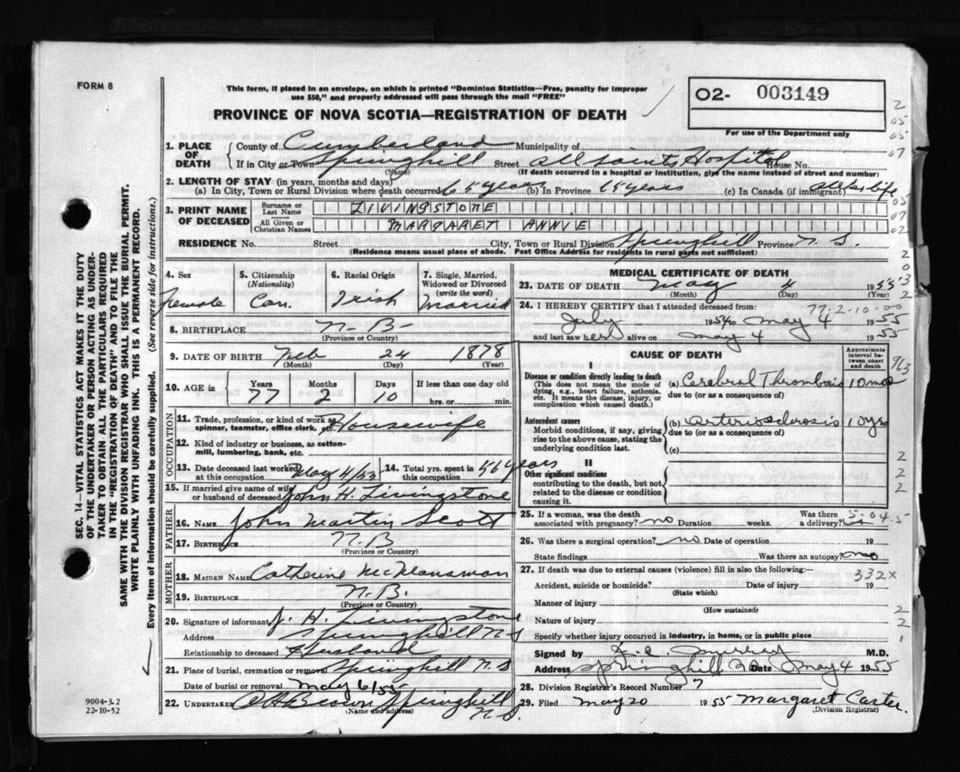 FORM 8
This form, if placed in an envelope, on which is printed "Dominion Statistics—Free, penalty for improper
use $50," and properly addressed will pass through the mail "FREE"
PROVINCE OF NOVA SCOTIA—REGISTRATION OF DEATH
02- 003149
For use of the Department only
1. PLACE OF DEATH
County of Cumberland Municipality of
If in City or Town Springhill Street All Saints Hospital House No.
(Name) (If death occurred in a hospital or institution, give the name instead of street and number)
2. LENGTH OF STAY (in years, months and days)
(a) In City, Town or Rural Division where death occurred 65 years (b) In Province 65 years (c) In Canada (if immigrant) all her life
3. PRINT NAME OF DECEASED
Surname or Last Name LIVINGSTONE
All Given or Christian Names MARGARET ANNIE
RESIDENCE No. Street City, Town or Rural Division Springhill Province N.S.
(Residence means usual place of abode. Post Office Address for residents in rural parts not sufficient)
4. Sex Female
5. Citizenship (Nationality) Can.
6. Racial Origin Irish
7. Single, Married, Widowed or Divorced (write the word) Married
8. BIRTHPLACE N.B.
(Province or Country)
9. DATE OF BIRTH Feb 24 1878
(Month) (Day) (Year)
10. AGE in Years 77 Months 2 Days 10 If less than one day old
hrs. or min.
OCCUPATION
11. Trade, profession, or kind of work as spinner, teamster, office clerk, etc. Housewife
12. Kind of industry or business, as cotton-mill, lumbering, bank, etc.
13. Date deceased last worked at this occupation May 4/53
14. Total yrs. spent in this occupation 56 years
15. If married give name of wife or husband of deceased John H. Livingstone
FATHER
16. NAME John Martin Scott
17. BIRTHPLACE N.B
(Province or Country)
MOTHER
18. MAIDEN NAME Catherine
19. BIRTHPLACE N.B.
(Province or Country)
20. Signature of informant J. H. Livingstone
Address Springhill N.S
Relationship to deceased Husband
21. Place of burial, cremation or removal Springhill N.S
Date of burial or removal May 6/55
22. UNDERTAKER Brown Springhill N.S.
(Name and Address)
MEDICAL CERTIFICATE OF DEATH
23. DATE OF DEATH May 4 1955
(Month) (Day) (Year)
77-2-10-00
24. I HEREBY CERTIFY that I attended deceased from:
July 1954 to May 4 1955
and last saw her alive on May 4 1955
CAUSE OF DEATH
Approximate interval between onset and death
I
Disease or condition directly leading to death
(This does not mean the mode of dying, e.g., heart failure, asthenia, etc. It means the disease, injury, or complication which caused death.)
(a) Cerebral Thrombosis 10 mos
due to (or as a consequence of)
Antecedent causes
Morbid conditions, if any, giving rise to the above cause, stating the underlying condition last.
(b) Arteriosclerosis 10 yrs
due to (or as a consequence of)
(c)
II
Other significant conditions
contributing to the death, but not related to the disease or condition causing it.
25. If a woman, was the death associated with pregnancy? no Duration weeks. Was there a delivery?
26. Was there a surgical operation? no Date of operation 19
State findings Was there an autopsy no
27. If death was due to external causes (violence) fill in also the following:—
332X
Accident, suicide or homicide? Date of injury 19
(State which)
Manner of injury
(How sustained)
Nature of injury
Specify whether injury occurred in industry, in home, or in public place
Signed by Murray M.D.
Address Springhill N.S Date May 4 1955
28. Division Registrar's Record Number 7
29. Filed May 20 1955 Margaret Carter.
(Division Registrar)
SEC. 14—VITAL STATISTICS ACT MAKES IT THE DUTY
OF THE UNDERTAKER OR PERSON ACTING AS UNDER-
TAKER TO OBTAIN ALL THE PARTICULARS REQUIRED
IN THE "REGISTRATION OF DEATH" AND TO FILE THE
SAME WITH THE DIVISION REGISTRAR WHO SHALL ISSUE THE BURIAL PERMIT.
WRITE PLAINLY WITH UNFADING INK. THIS IS A PERMANENT RECORD.
Every item of information should be carefully supplied. (See reverse side for instructions.)
9004-3.2
22-10-52